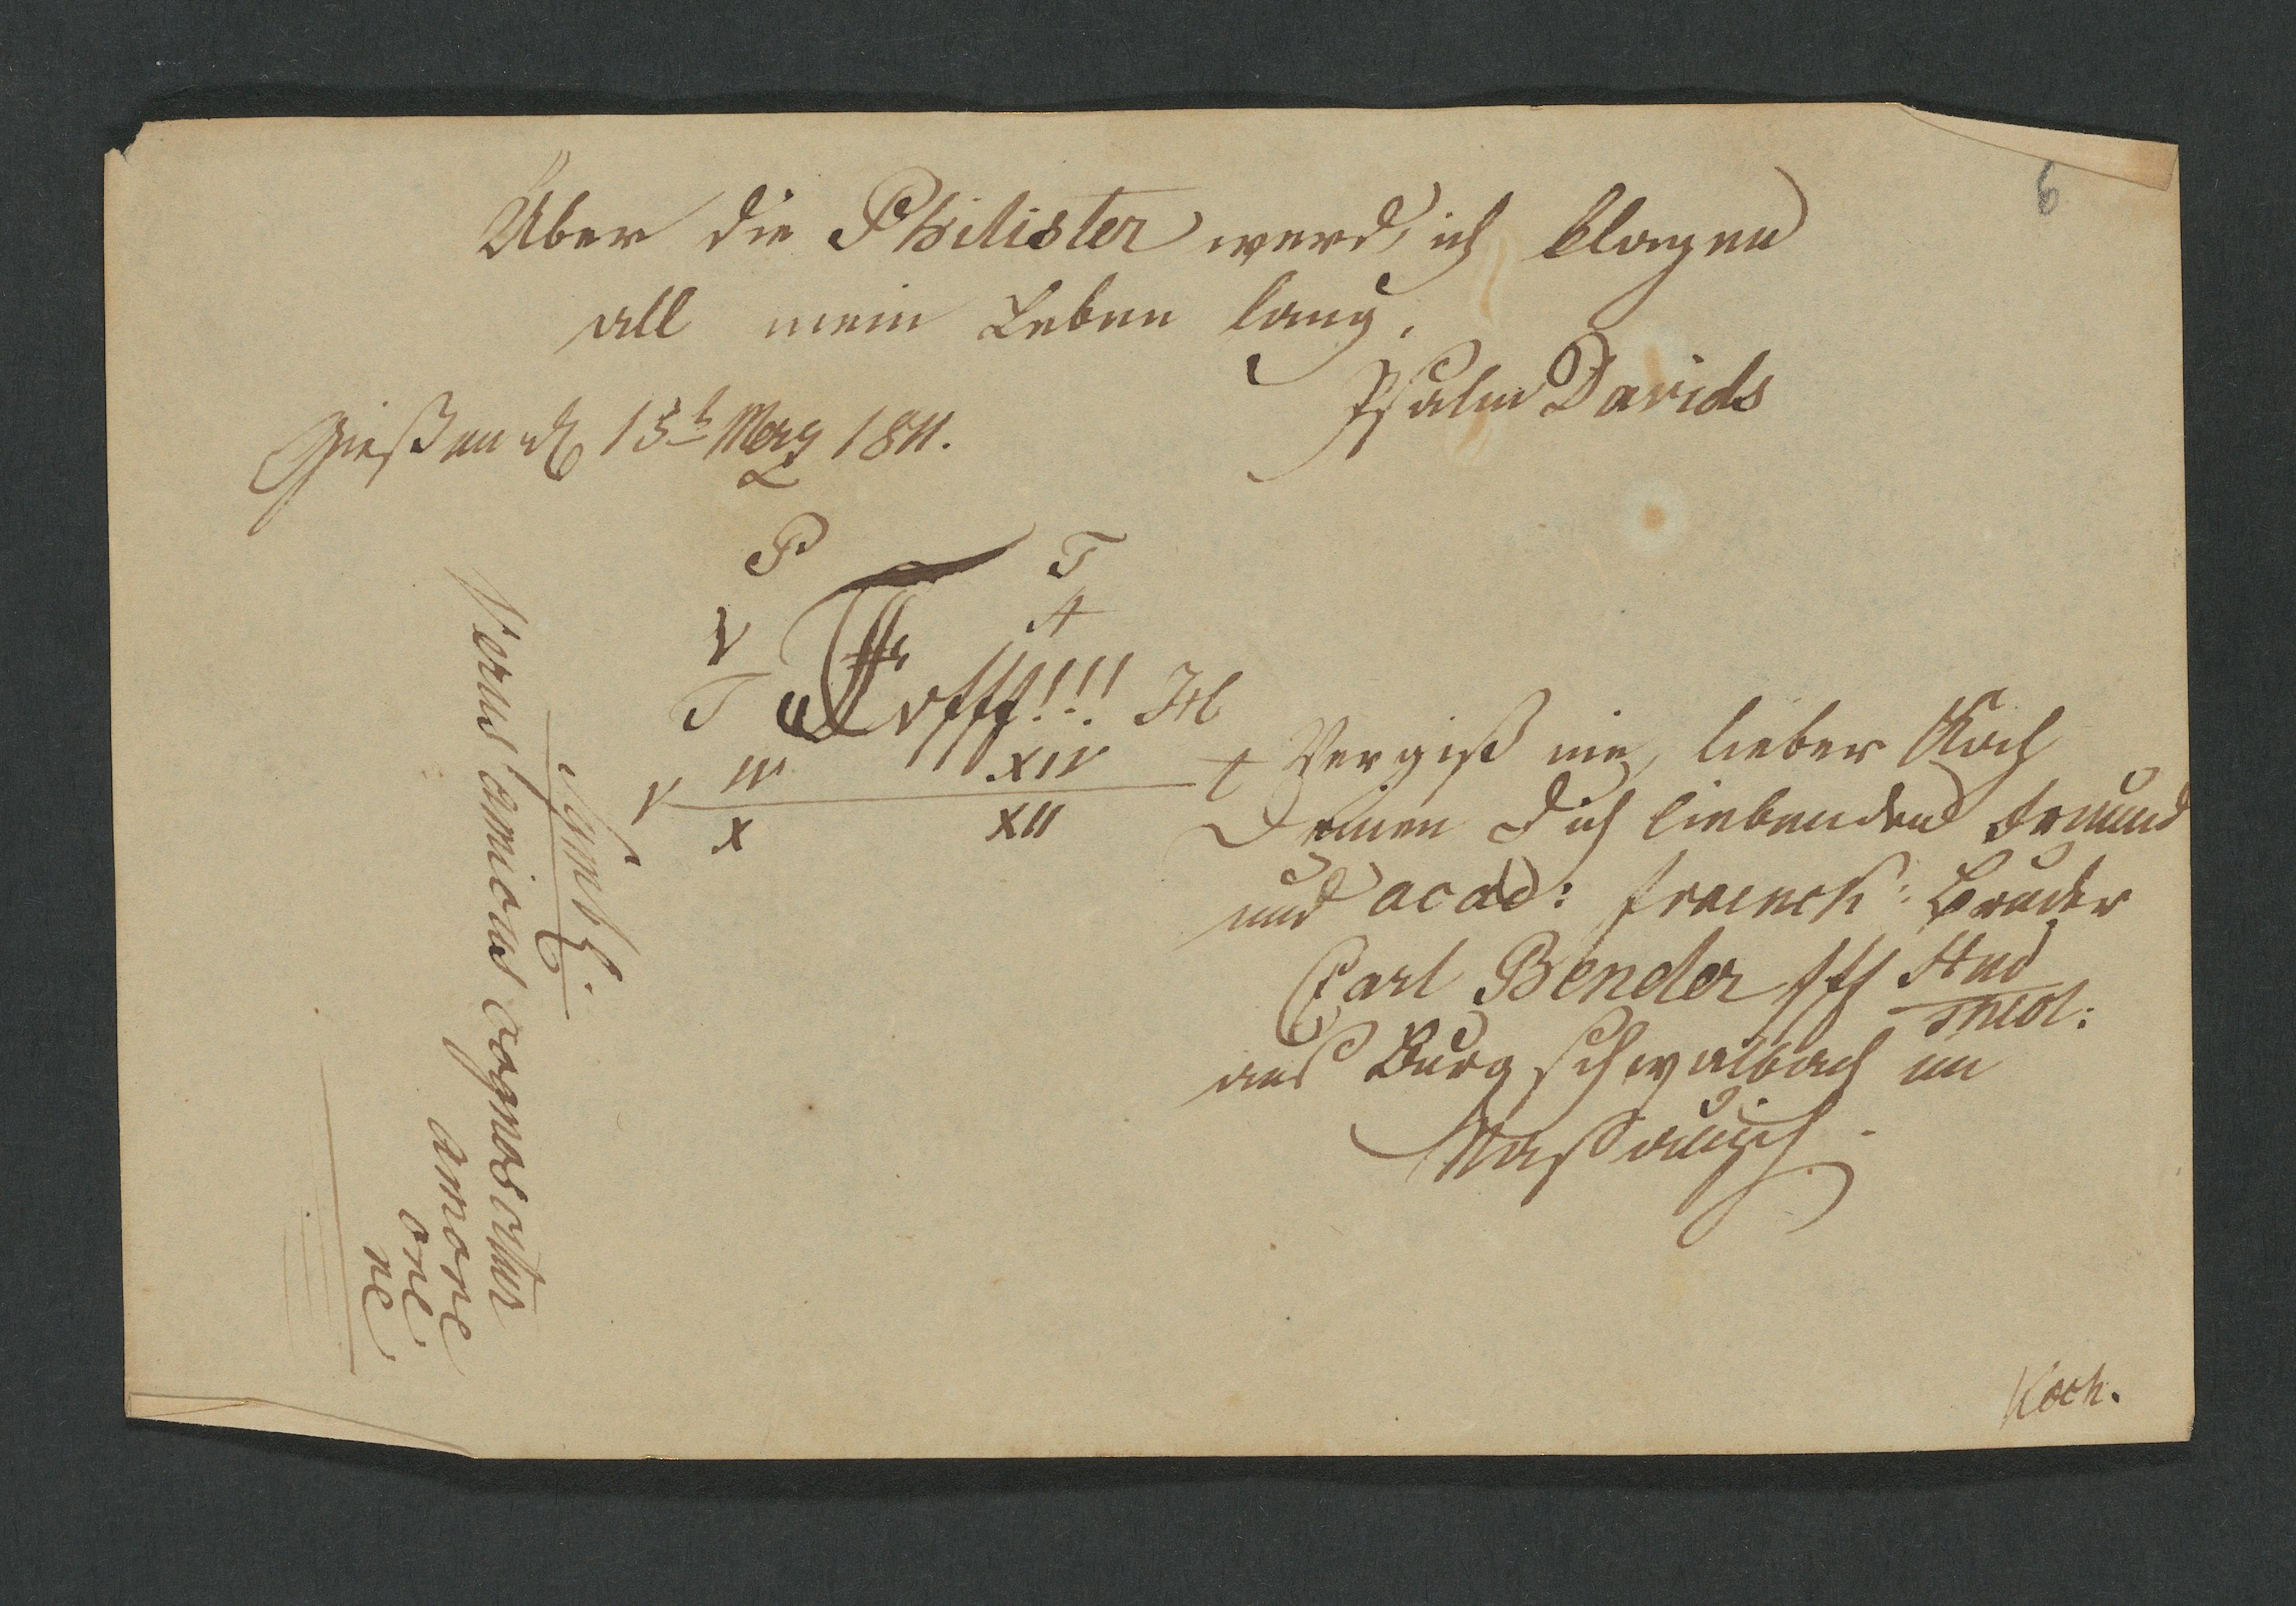 6
Über die Philister werd' ich klagen
all mein Leben lang.
Psalm Davids
Gießen d 15t Merz 1811.
P T
V A
T offf!!!
V IV XIV
X XII
Vergiß nie, lieber Koch
Deinen Dich liebenden Freund
und acad: Bruder
Carl Bender Stud
med:
aus Burgschwalbach im
Naßauisch.
Symb:
Verus amicus cognoscitur
amore
ore
re
Koch.